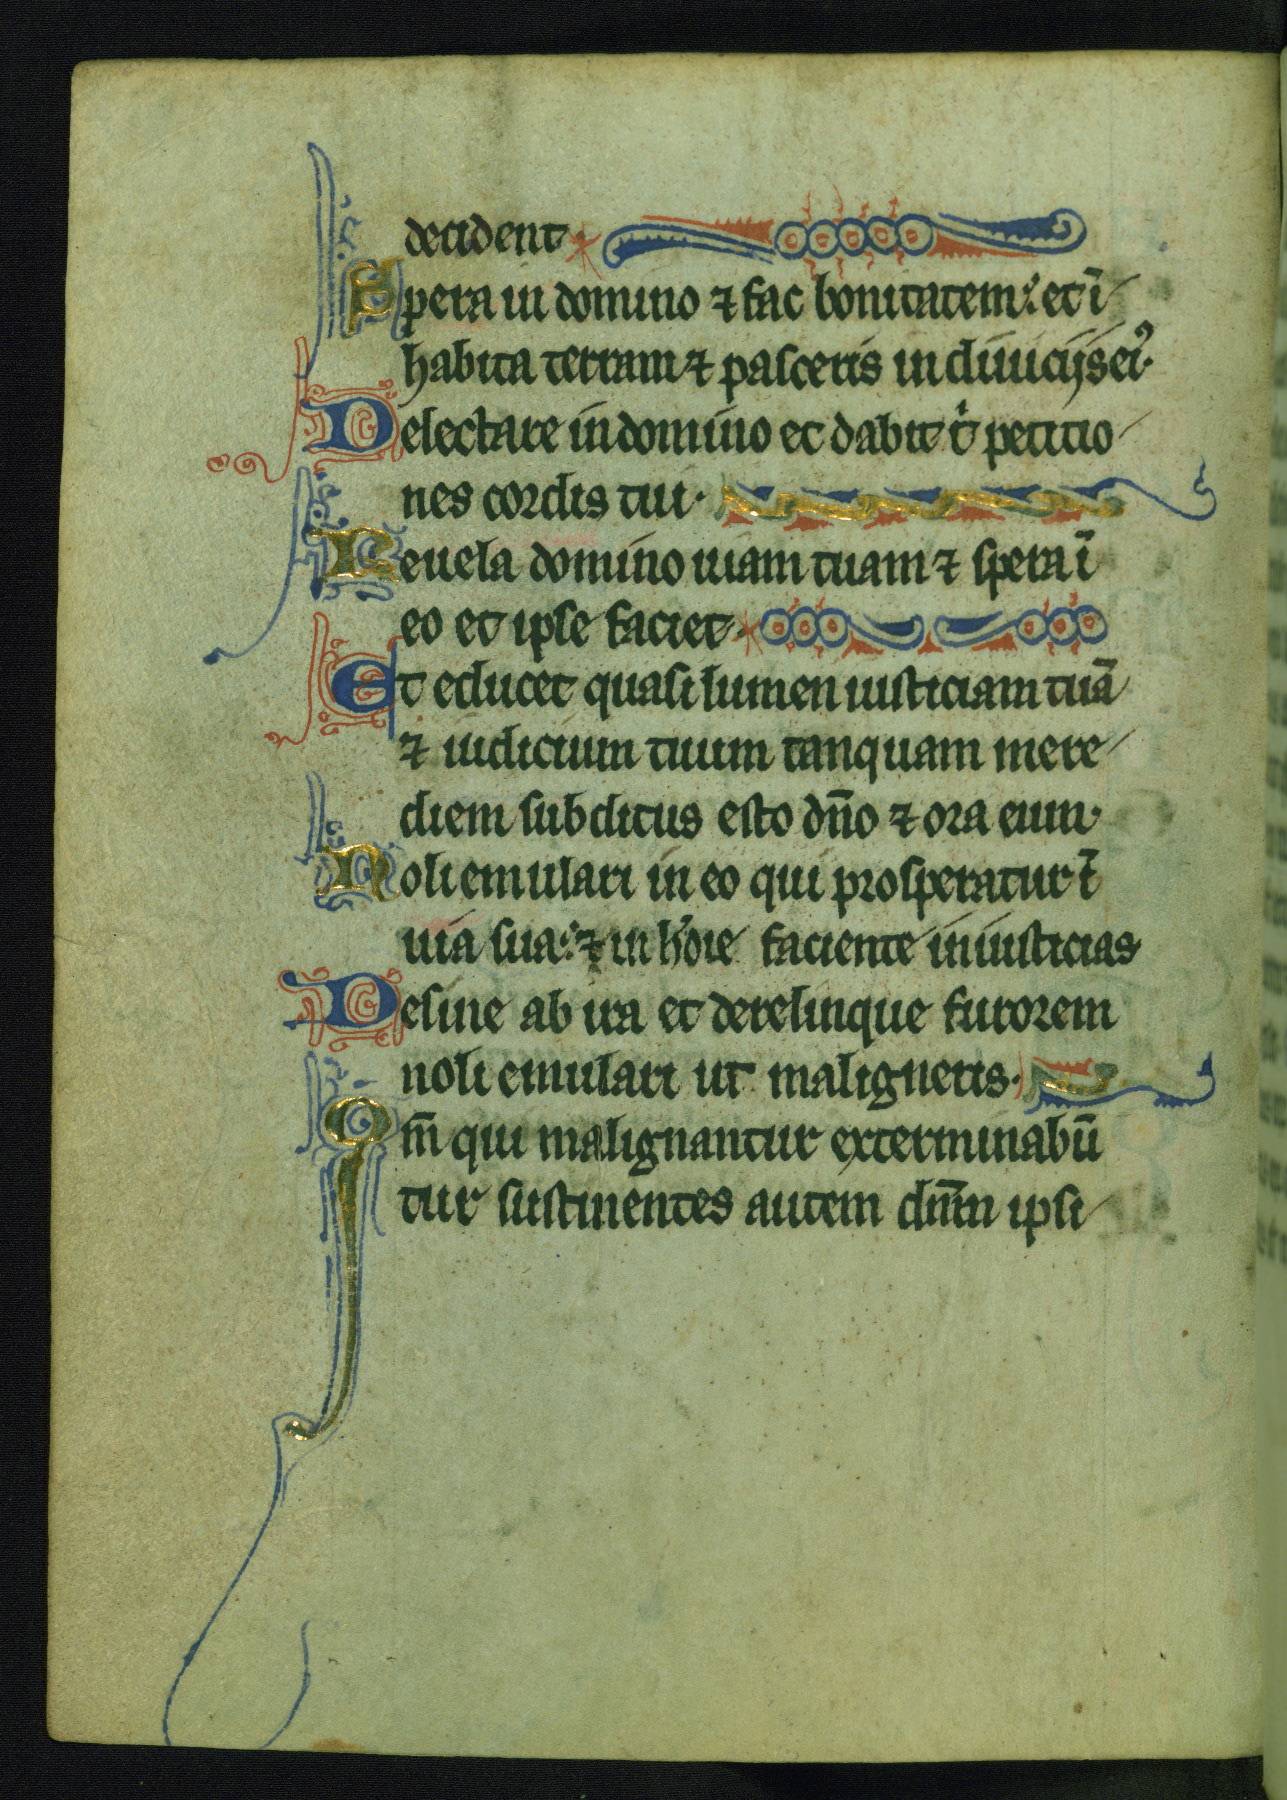 decident·
Spera in domino ⁊ fac bonitatem: et ī
habita terram ⁊ pasceris in diuicijs eiꝰ·
Delectare in domino et dabit t̍ petitio
nes cordis tui·
Reuela domino uiam tuam ⁊ spera ī
eo et ipse faciet·
Et educet quasi lumen iusticiam tuā
⁊ iudicium tuum tanquam mere
diem subditus esto dn̄o ⁊ ora eum·
Noli emulari in eo qui prosperatur ī
uia sua: ⁊ in ho̍ie faciente iniusticias
Desine ab ira et derelinque furorem
noli emulari ut maligneris·
Qm̄ qui malignantur exterminabū
tur sustinentes autem dn̄m ipsi